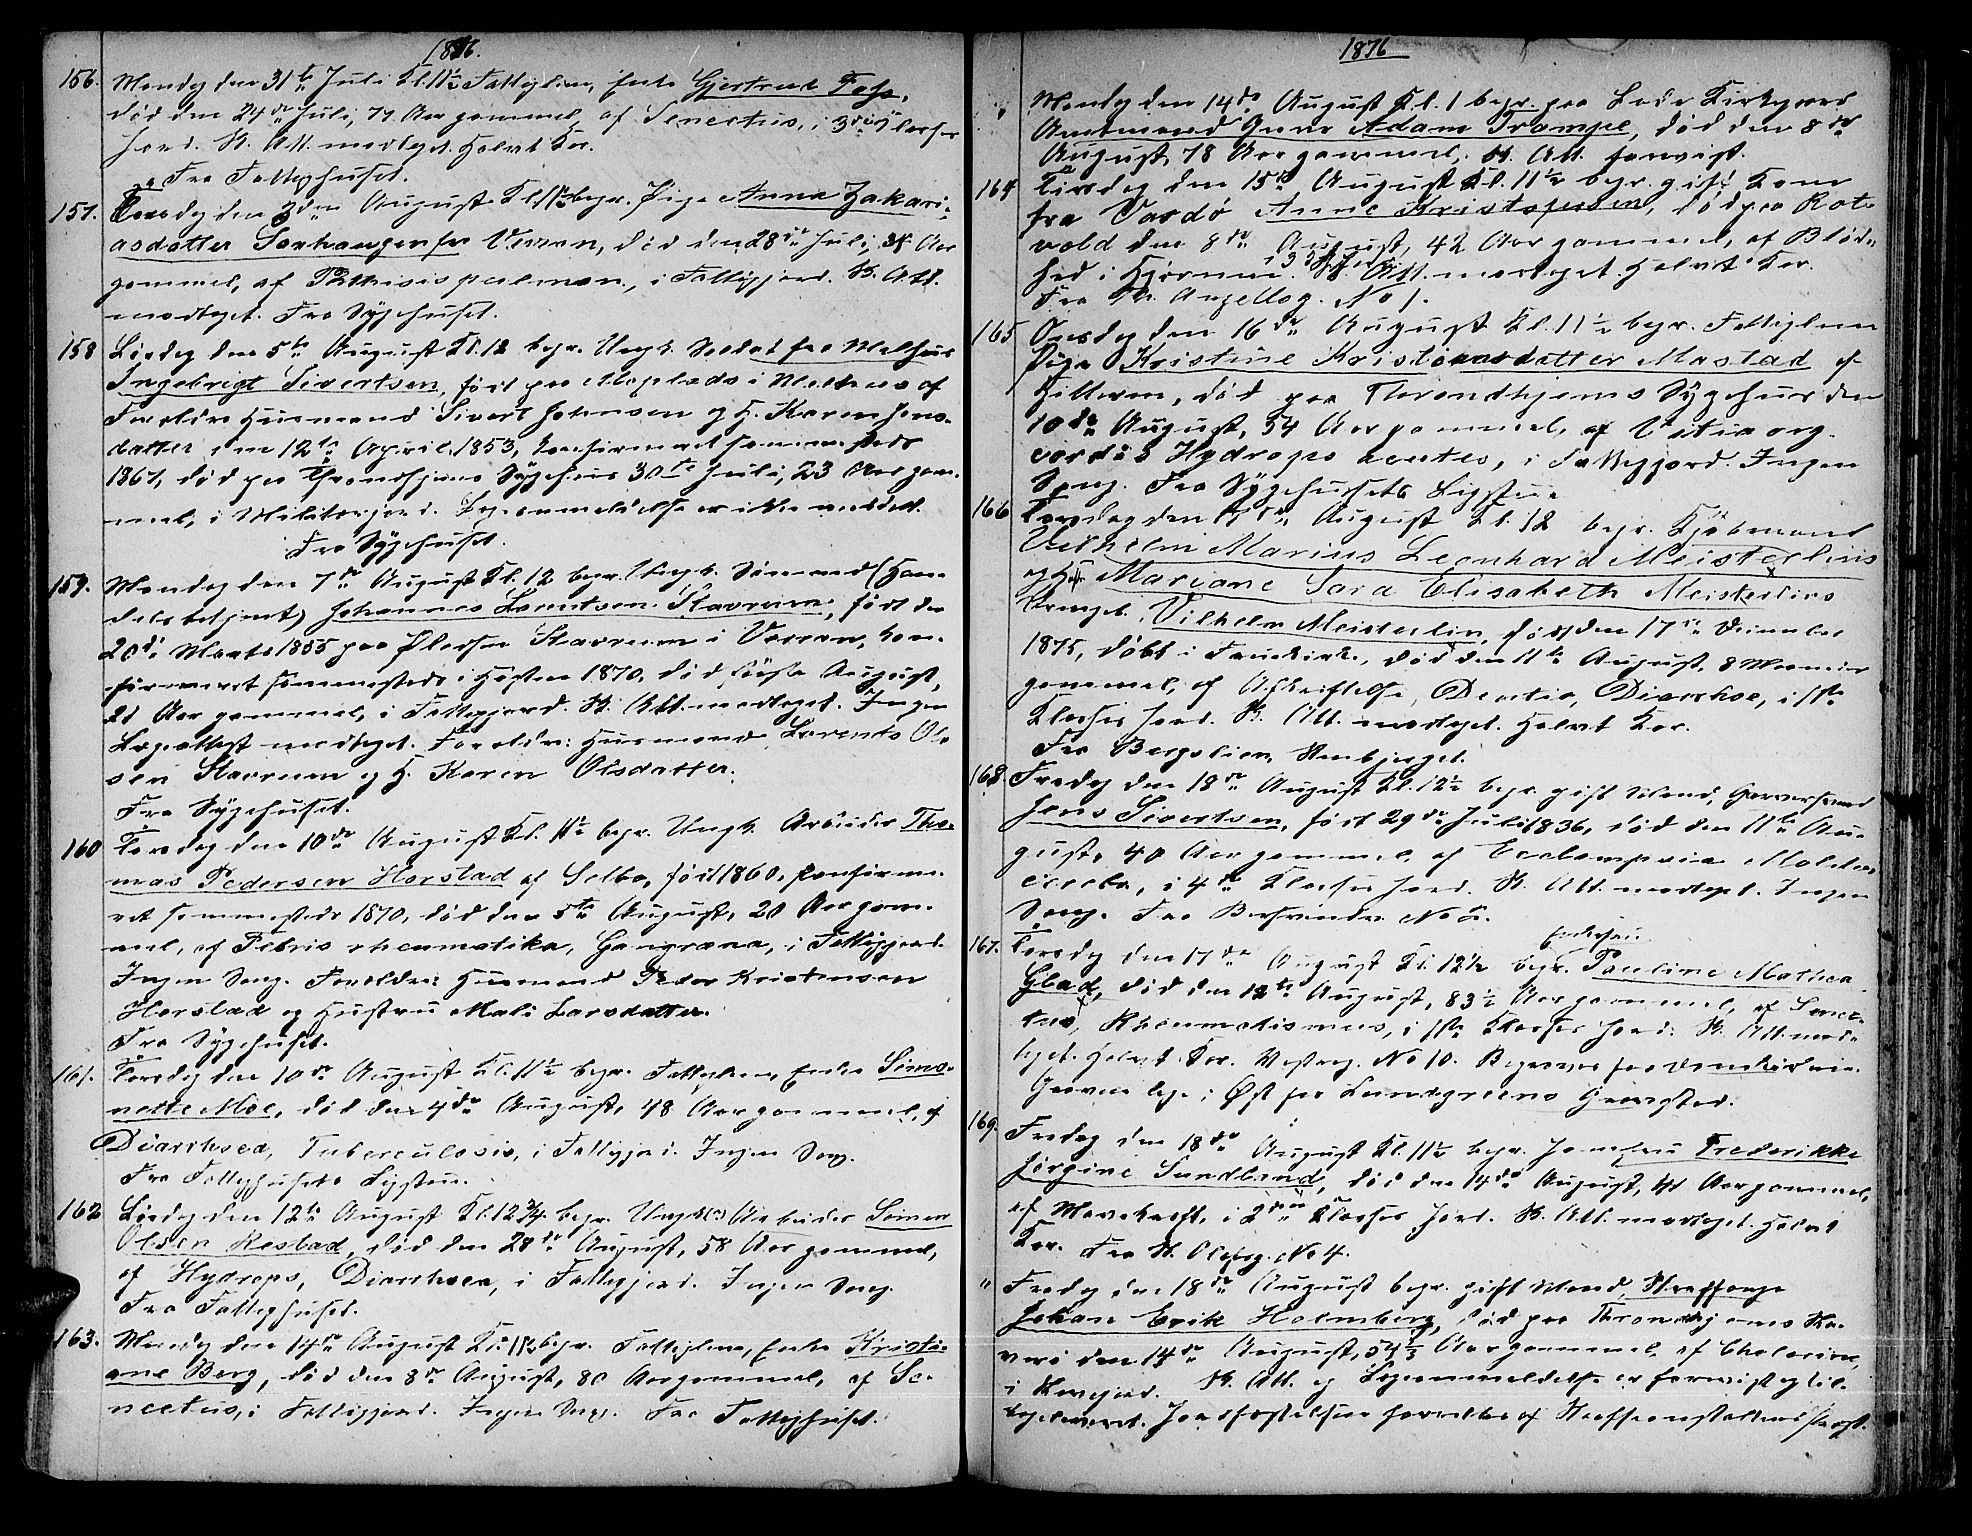 1876.
156. Mandag den 31te Juli Kl. 11½ Fattiglem, Enke Gjertrud Foss,
død den 24de Juli, 79 Aar gammel, af Senectus, i 3die Klasses
Jord. St. Att. modtaget. Halvt Kor.
Fra Fattighuset.
157. Torsdag den 3die August Kl. 11½ begr. Pige Anna Zakari-
asdatter Saxhaugen fra Værran, død den 28de Juli, Aar
gammel, af Pthisis pulmon, i Fattigjord. St. Att.
modtaget. Fra Sygehuset.
158 Lørdag den 5te August Kl. 12 begr. Ungk. Soldat fra Melhus
Ingebrigt Sivertsen, født paa Moplads i Melhus af
Forældre Husmand Sivert Johnsen og H. Karen Jons-
datter den 12te April 1853, konfirmeret sammesteds
1867, død paa Throndhjems Sygehus 30te Juli, 23 Aar gam-
mel, i Militærjord. Lægeanmeldelse er ikke meddelt.
Fra Sygehuset.
159. Mandag den 7de August Kl. 12 begr. Ungk. Sømand (Han-
delsbetjent) Johannes Lorentsen Stavrum, født den
20de Marts 1855 paa Pladsen Stavrum i Værran, kon-
firmeret sammesteds i Høsten 1870, død første August,
21 Aar gammel, i Fattigjord. St. Att. modtaget. Ingen
Lægeattest modtaget. Forældre: Husmand Lorents Ol-
sen Stavrum og H. Karen Olsdatter.
Fra Sygehuset.
160 Torsdag den 10de August Kl. 11½ begr. Ungk. Arbeider Tho-
mas Pedersen Horstad af Selbo, født 1860, konfirme-
ret sammesteds 1870, død den 5te August, 20 Aar gam-
mel, af Febris rheumatika, Gangræna, i Fattigjord.
Ingen Sang. Forældre: Husmand Peder Kristensen
Horstad og Hustru Mali Larsdatter.
Fra Sygehuset.
161. Torsdag den 10de August Kl. 11½ begr. Fattiglem, Enke Simo-
nette Moe, død den 4de August, 48 Aar gammel, af
Diarrhoea, Tuberculosis, i Fattigjord. Ingen Sang.
Fra Fattighusets Ligstue.
162 Lørdag den 12te August Kl. 12¾ begr. Ungk (?) Arbeider Simen
Olsen Restad, død den 28de August, 58 Aar gammel,
af Hydrops, Diarrhoea, i Fattigjord. Ingen Sang.
Fra Fattighuset.
163. Mandag den 14de August Kl. 11½ begr. Fattiglem, Enke Kristi-
ane Berg, død den 8de August, 80 Aar gammel, af Se-
nectus, i Fattigjord. Ingen Sang. Fra Fattighuset.
1876
" Mandag den 14de August Kl. 1 begr. paa Lade Kirkegaard
Amtmand Adam Trampe, død den 8de
August, 78 Aar gammel. St. Att. forevist.
164 Tirsdag den 15de August Kl. 11½ begr. gift Kone
fra Vardø Anne Kristofersen, død paa Rot-
vold den 8de August, 42 Aar gammel, af Blød-
hed i Hjernen. St. Att. modtaget. Halvt Kor.
Fra Th. Angellsg. No 1.
165 Onsdag den 16de August Kl. 11½ begr. Fattiglem
Pige Kristine Kristiansdatter Mastad af
Hitteren, død paa Throndhjems Sygehus den
10de August, 54 Aar gammel, af Vitia org.
cordis Hydrops acutes, i Fattigjord. Ingen
Sang. Fra Sygehusets Ligstue.
166 Torsdag den 17de August Kl. 12 begr. Kjøbmand
Vilhelm Marius Leonhard Meisterlins
og H. Mariane Sara Elisabeth Meisterlins
Drengeb. Vilhelm Meisterlin, født den 17de Decembe
1875, døbt i Fruekirke, død den 11te August, 8 Maaneder
gammel, af Afkræftelse, Dentio, Diarrhoe, i 1ste
Klasses Jord. St. Att. modtaget. Halvt Kor.
Fra Bergslien, Stenbjerget.
168. Fredag den 18de August Kl. 12½ begr. gift Mand, Garversvend
Jens Sivertsen, født 29de Juli 1836, død den 11te Au-
gust, 40 Aar gammel, af Eeclampsia
i 4de Klasses Jord. St. Att. modtaget. Ingen
Sang. Fra
167. Torsdag den 17de August Kl. 12½ begr. Enkefru Pauline Mathea
Glad, død den 12te August, 83½ Aar gammel, af Senec-
tus, Rheumatismus, i 1ste Klasses Jord. St. Att. mod-
taget. Halvt Kor. Vestreg. No 10.
Graven lige i Øst for Lundgreens Gravsted.
169. Fredag den 18de August Kl. 11½ begr. Jomfru Frederikke
Jørgine Sundland, død den 14de August, 41 Aar gammel,
af Mavekræft, i 2den Klasses Jord. St. Att. modtaget. Halvt
Kor. Fra St. Olafsg. No 4.
" Fredag den 18de August begr. gift Mand, Straffange
Johan Erik Holmberg, død paa Throndhjems Sla-
veri den 14de August, 54⅓ Aar gammel, af Cholerine,
i Slavejord. St. Att. og Lægeanmeldelse er forevist og til-
bageleveret. Jordfæstelsen forrettes af Straffeanstaltens Præst.